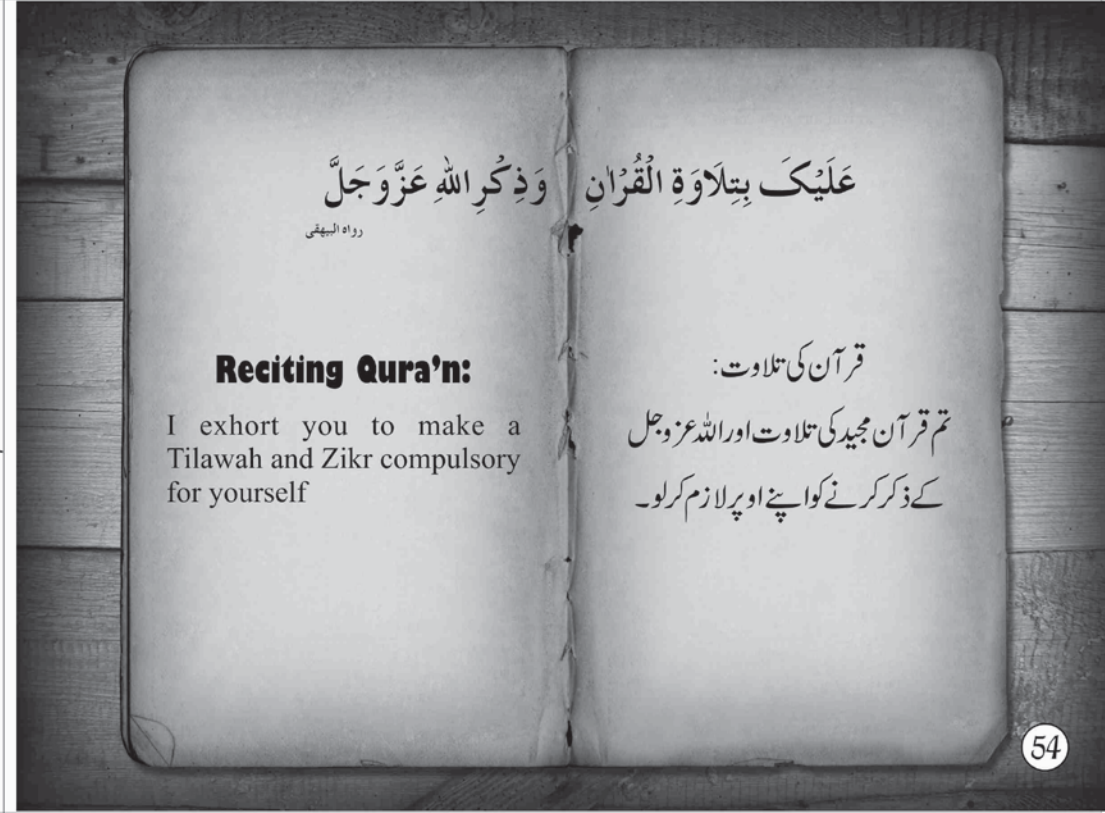 عَلَيْكَ بِتِلَاوَةِ الْقُرْاٰنِ وَذِكْرِ اللهِ عَزَّوَجَلَّ
رواہ البیھقی
Reciting Qura'n:
I exhort you to make a
Tilawah and Zikr compulsory
for yourself
قرآن کی تلاوت:
تم قرآن مجید کی تلاوت اور اللہ عزوجل
کے ذکر کرنے کو اپنے اوپر لازم کرلو۔
54